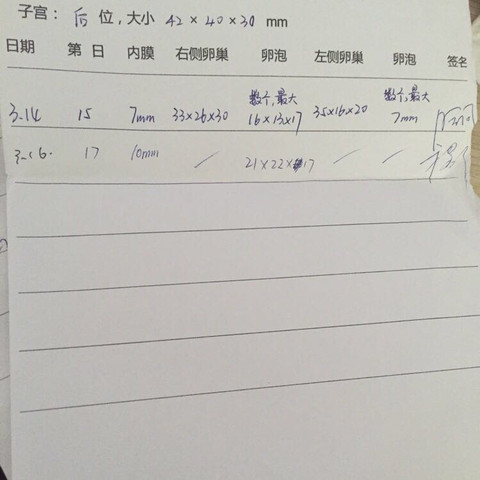 子宫：后 位，大小 42 × 40 × 30 mm
日期 第 日 内膜 右侧卵巢 卵泡 左侧卵巢 卵泡 签名
数个,最大 数个,最大
3.14 15 7mm 33×26×30 16×13×17 35×16×20 7mm
3.16. 17 10mm / 21×22×17 / /